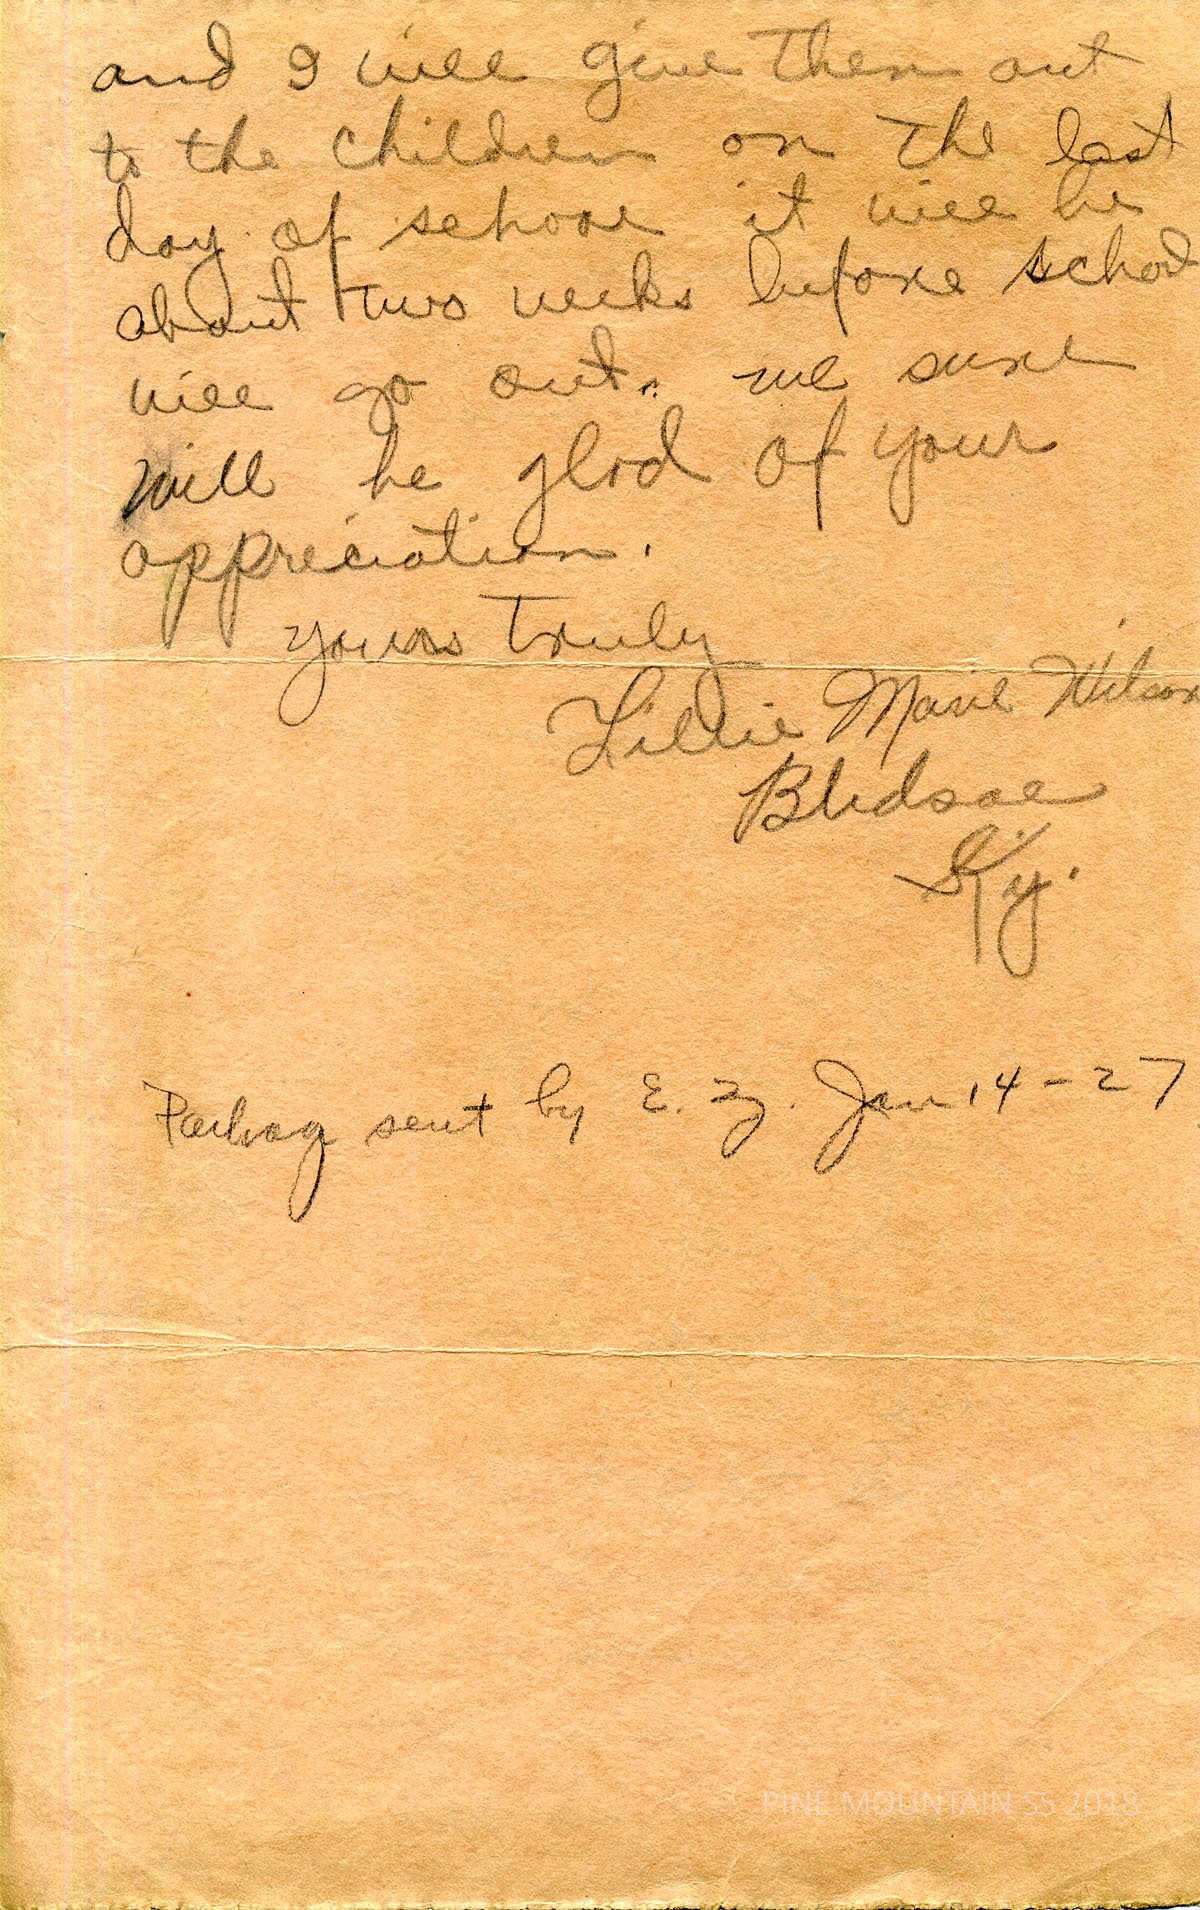 and I will give them out
to the children on the last
day of school it will be
about two weeks before school
will go out. we sure
will be glad of your
appreciation.
yours truly
Lillie Marie Wilson
Bledsoe
Ky.
Packag sent by E. Z. Jan 14-27
PINE MOUNTAIN SS 2018